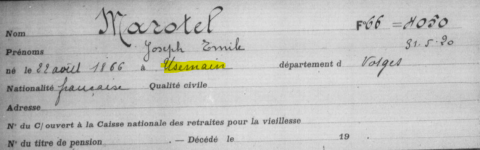 Nom Marotel F° 66 = 4050
Prénoms Joseph Emile 31.5.20
né le 22 août 1866 à Usemain département d Vosges
Nationalité française Qualité civile
Adresse
N° du C/ ouvert à la Caisse nationale des retraites pour la vieillesse
N° du titre de pension . — Décédé le 19